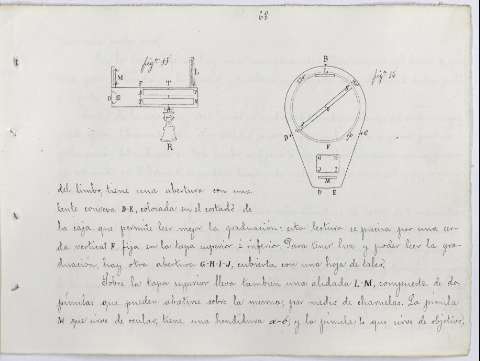 68
figª 15
figª 14
M
F
T
L
D
E
R
B
D
C
F
M
D E
del limbo, tiene una abertura con una
lente convexa D-E, colocada en el costado de
la caja que permite leer mejor la graduación: esta lectura se precisa por una cer-
da vertical F fija en la tapa superior é inferior. Para tener luz y poder leer la gra-
duación, hay otra abertura G-H-I-J, cubierta con una hoja de talco.
Sobre la tapa superior lleva tambien una alidada L-M, compuesta de dos
pínulas que pueden abatirse sobre la misma, por medio de charnelas. La pínula
M que sirve de ocular, tiene una hendidura y la pínula L que sirve de objetivo,